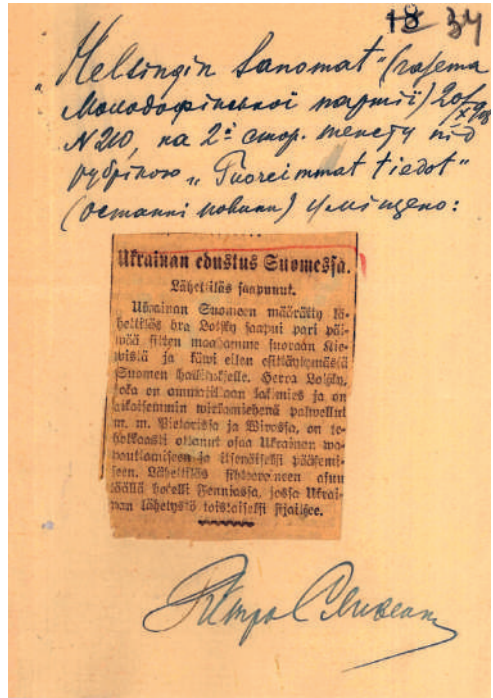 18 34
„Helsingin Sanomat" (газета
Молодофінської партії) 20/X 918
N 210, на 2ій стор. тексту під
рубрікою „Tuoreimmat tiedot"
(останні новини) уміщено:
Ukrainan edustus Suomessa.
Lähettiläs saapunut.
Ukrainan Suomeen määrätty lä-
hettiläs hra Lotsky saapui pari päi-
wää sitten maahamme suoraan Kie-
wistä ja käwi eilen esittäytymässä
Suomen hallitukselle. Herra Lotsky,
joka on ammatiltaan lakimies ja on
aikaisemmin wirkamiehenä palwellut
m. m. Pietarissa ja, on te-
hokkaasti ottanut osaa Ukrainan wa-
pautumiseen ja itsenäiseksi pääsemi-
seen. Lähettiläs asuu
täällä hotelli Fenniassa, jossa Ukrai-
nan lähetystö toistaiseksi sijaitsee.
Петро